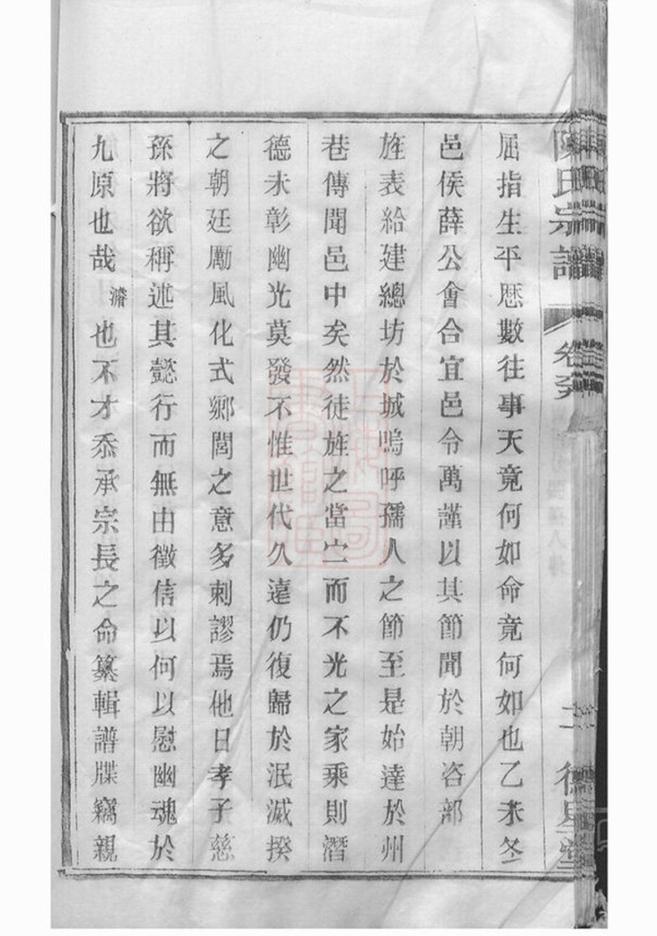 陳氏宗譜
卷
德星堂
屈指生平歷數往事天竟何如命竟何如也乙未冬
邑侯薛公會合宜邑令萬謹以其節聞於朝咨部
旌表給建總坊於城嗚呼孺人之節至是始達於州
巷傳聞邑中矣然徒旌之當宀而不光之家乘則潛
德未彰幽光莫發不惟世代久遠仍復歸於泯滅揆
之朝廷勵風化式鄉閭之意多刺謬焉他日孝子慈
孫將欲稱述其懿行而無由徵信以何以慰幽魂於
九原也哉濬也不才忝承宗長之命纂輯譜牒竊親